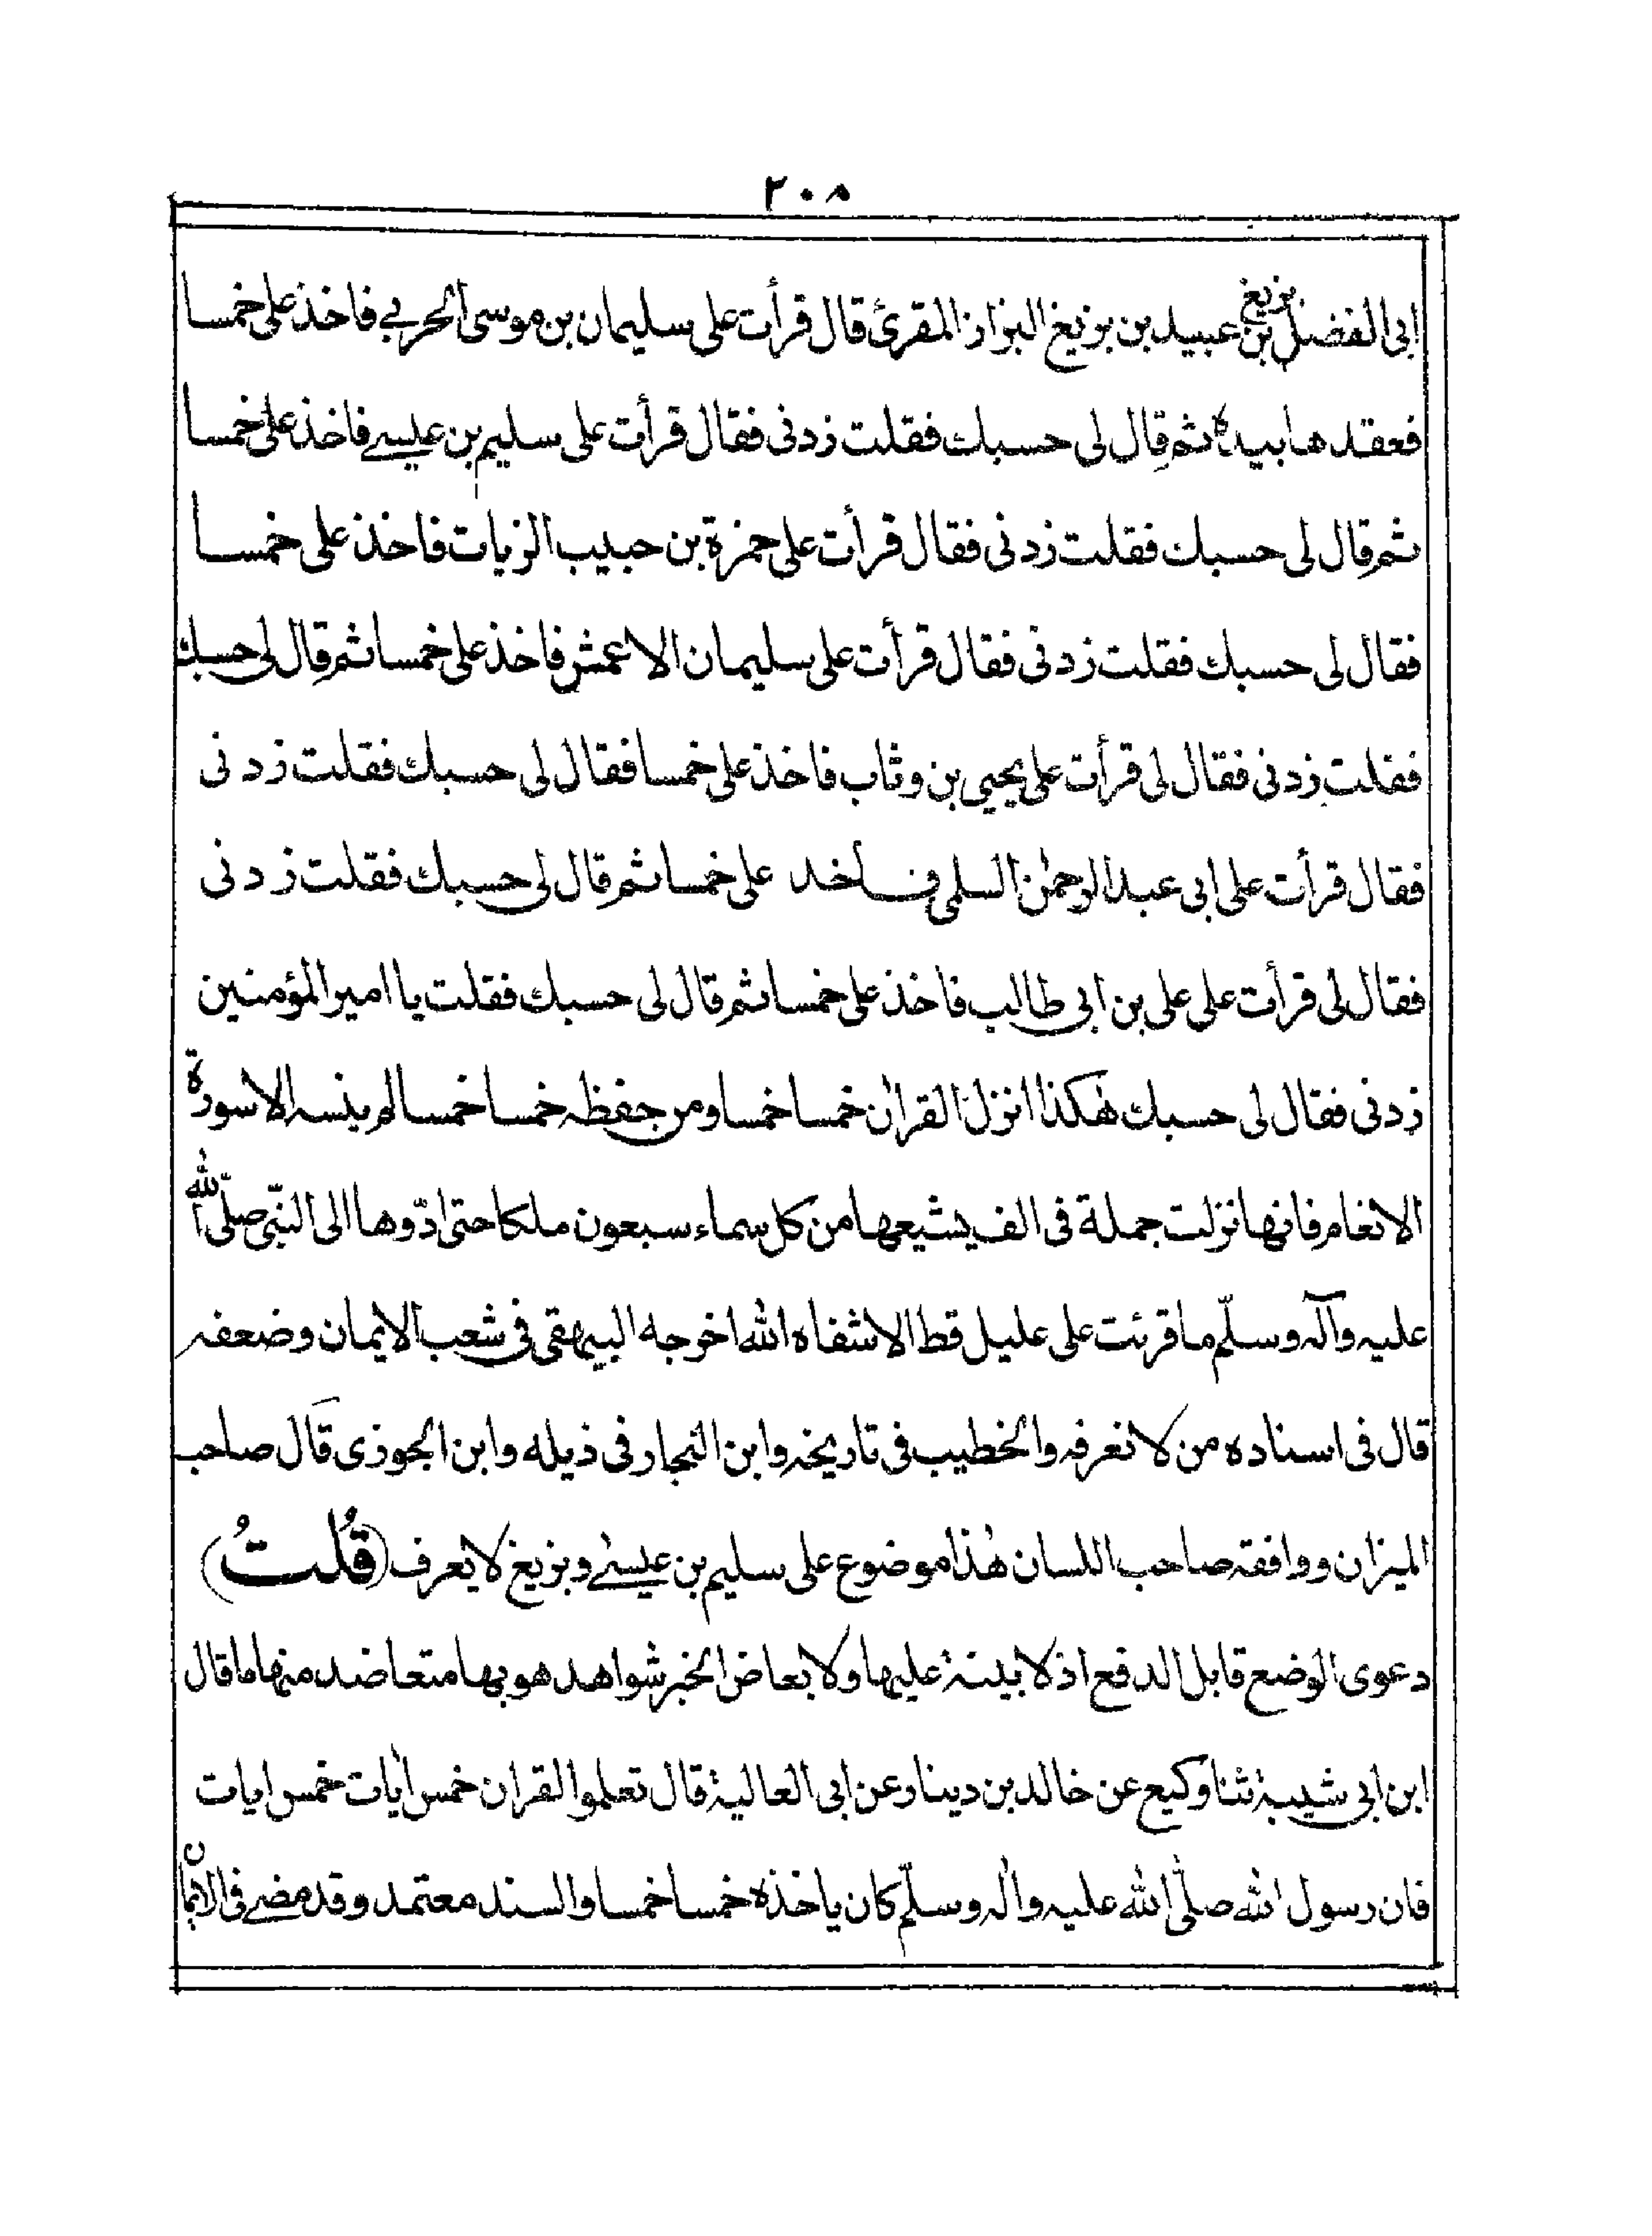 ٢٠٨
ابى الفضل بزيغ بن عبيد بن بزيغ البزاز المقرئ قال قرأت على سليمان بن موسى الحربے فاخذ على خمسا
فعقدها بيده ثم قال لى حسبك فقلت زدنى فقال قرأت على سليم بن عيسے فاخذ على خمسا
ثم قال لى حسبك فقلت زدنى فقال قرأت على حمزة بن حبيب الزيات فاخذ على خمسا
فقال لى حسبك فقلت زدنى فقال قرأت على سليمان الاعمش فاخذ على خمسا ثم قال لى حسبك
فقلت زدنى فقال لى قرأت على يحيى بن وثاب فاخذ على خمسا فقال لى حسبك فقلت زدنى
فقال قرأت على ابى عبد الرحمٰن السلمى فاخد على خمسا ثم قال لى حسبك فقلت زدنى
فقال لى قرأت على على بن ابى طالب فاخذ على خمسا ثم قال لى حسبك فقلت يا امير المؤمنين
زدنى فقال لى حسبك هٰكذا انزل القراٰن خمسا خمسا ومن حفظه خمسا خمسا لم ينسه الا سورة
الانعام فانها نزلت جملة فى الف يشيعها من كل سماء سبعون ملكا حتى ادّوها الى النبّى صلّى الله
عليه وآله وسلّم ما قرئت على عليل قط الا شفاه الله اخرجه البيهقى فى شعب الايمان وضعفه
قال فى اسناده من لا نعرفه والخطيب فى تاريخه وابن النجار فى ذيله وابن الجوزى قال صاحب
الميزان ووافقه صاحب اللسان هٰذا موضوع على سليم بن عيسےٰ وبزيغ لا يعرف (قُلتُ)
دعوى الوضع قابل الدفع اذ لا بينة عليها ولا بعاض الخبر شواهد هو بها متعاضد منها ما قال
ابن ابى شيبة ثنا وكيع عن خالد بن دينار عن ابى العالية قال تعلموا القران خمس اٰيات خمس ايات
فان رسول الله صلّى الله عليه واٰله وسلّم كان ياخذه خمسا خمسا والسند معتمد وقد مضے فى الاتمان